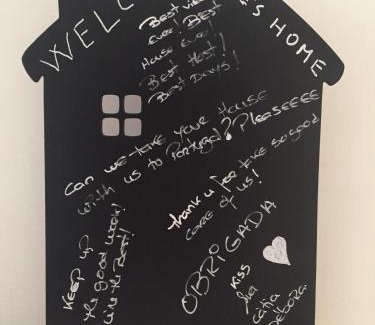 WELC
S HOME
BEST
EVER! BEST
HOUSE EVER!
BEST HOST!
BEST DAYS!
CAN WE TAKE YOUR HOUSE
WITH US TO PORTUGAL? PLEASEEEE
thank u for take so good
care of us!
KEEP UP
the good work!
OBRIGADIA
KISS